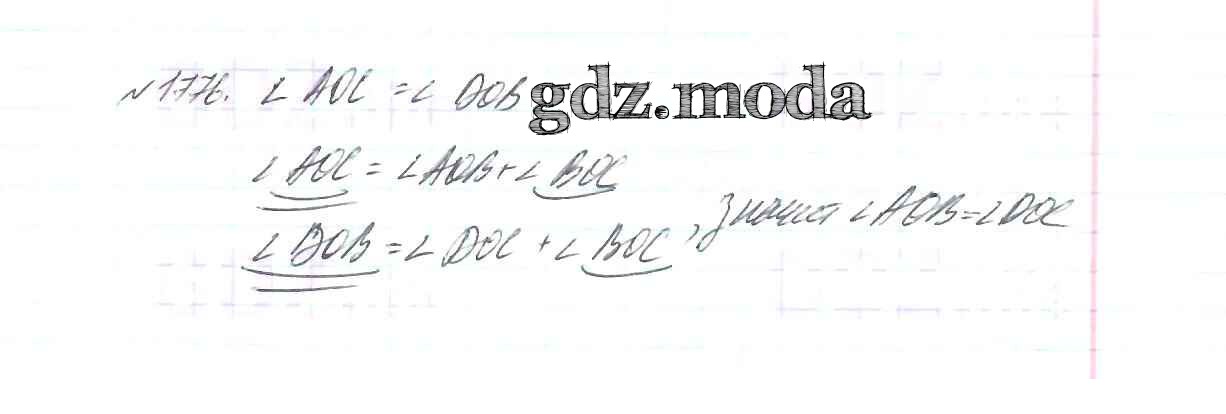 №1776. ∠ AOC = ∠ DOB gdz.moda
∠ AOC = ∠ AOB + ∠ BOC
∠ DOB = ∠ DOC + ∠ BOC, значит ∠ AOB = ∠ DOC